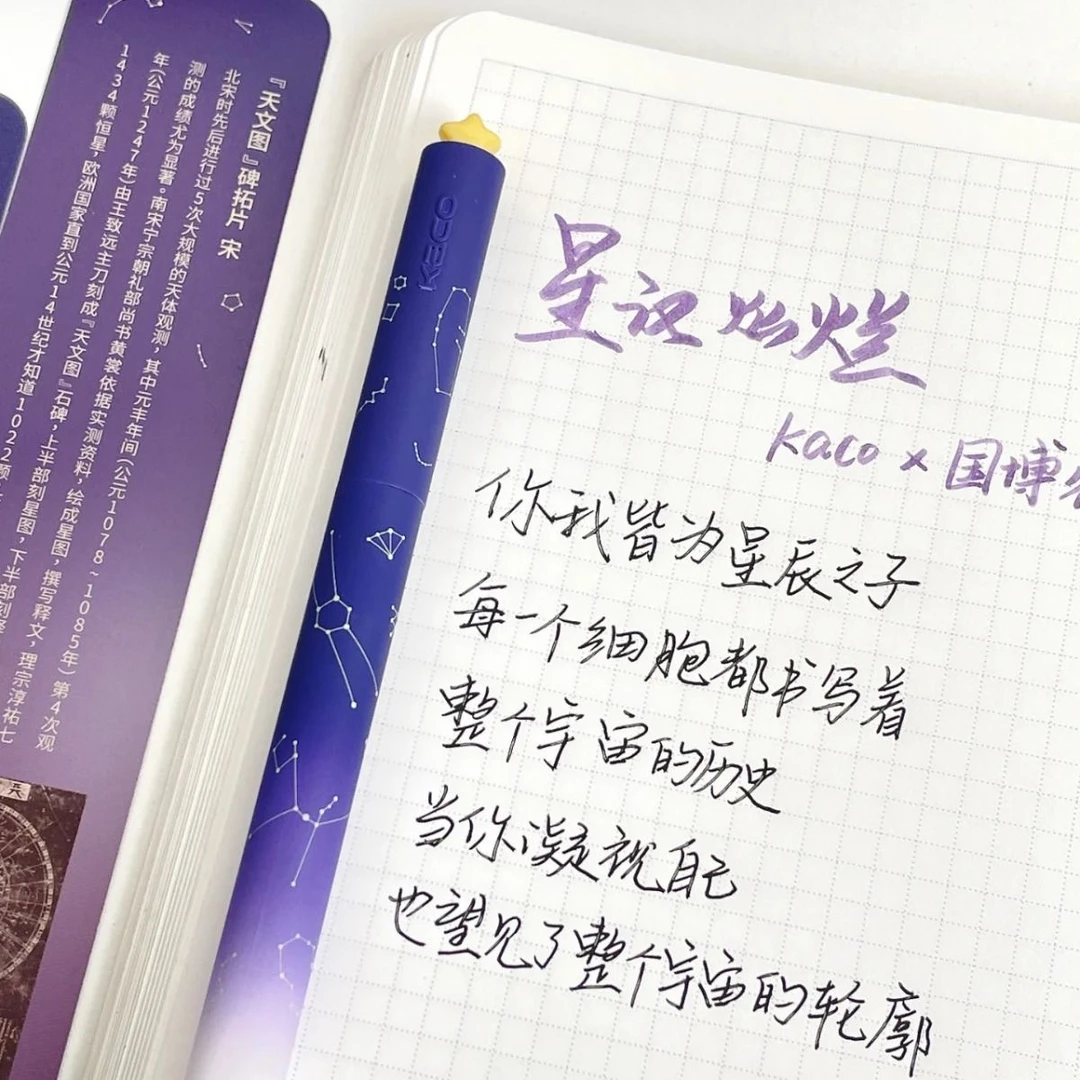 『天文图』碑拓片 宋
北宋时先后进行过5次大规模的天体观测，其中元丰年间(公元1078~1085年)第4次观
测的成绩尤为显著。南宋宁宗朝礼部尚书黄裳依据实测资料，绘成星图，撰写释文，理宗淳祐七
年(公元1247年)由王致远主刀刻成『天文图』石碑，上半部刻星图，下半部刻释
1434颗恒星，欧洲国家直到公元14世纪才知道1022颗
KACO
星汉灿烂
kaco × 国博
你我皆为星辰之子
每一个细胞都书写着
整个宇宙的历史
当你凝视自己
也望见了整个宇宙的轮廓